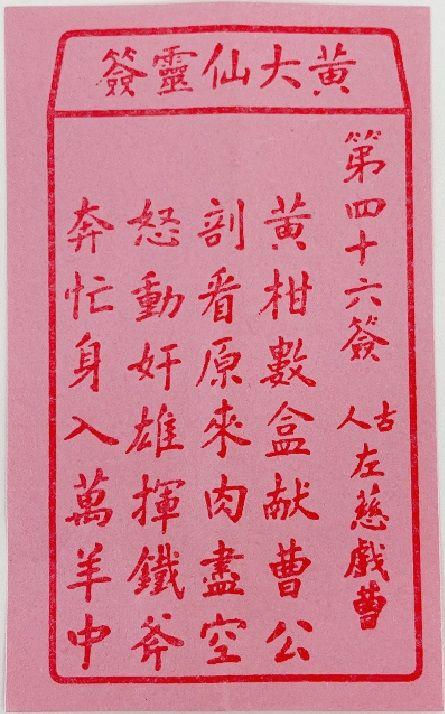 黃大仙靈簽
第四十六簽 古人左慈戲曹
黃柑數盒献曹公
剖看原來肉盡空
怒動奸雄揮鐵斧
奔忙身入萬羊中